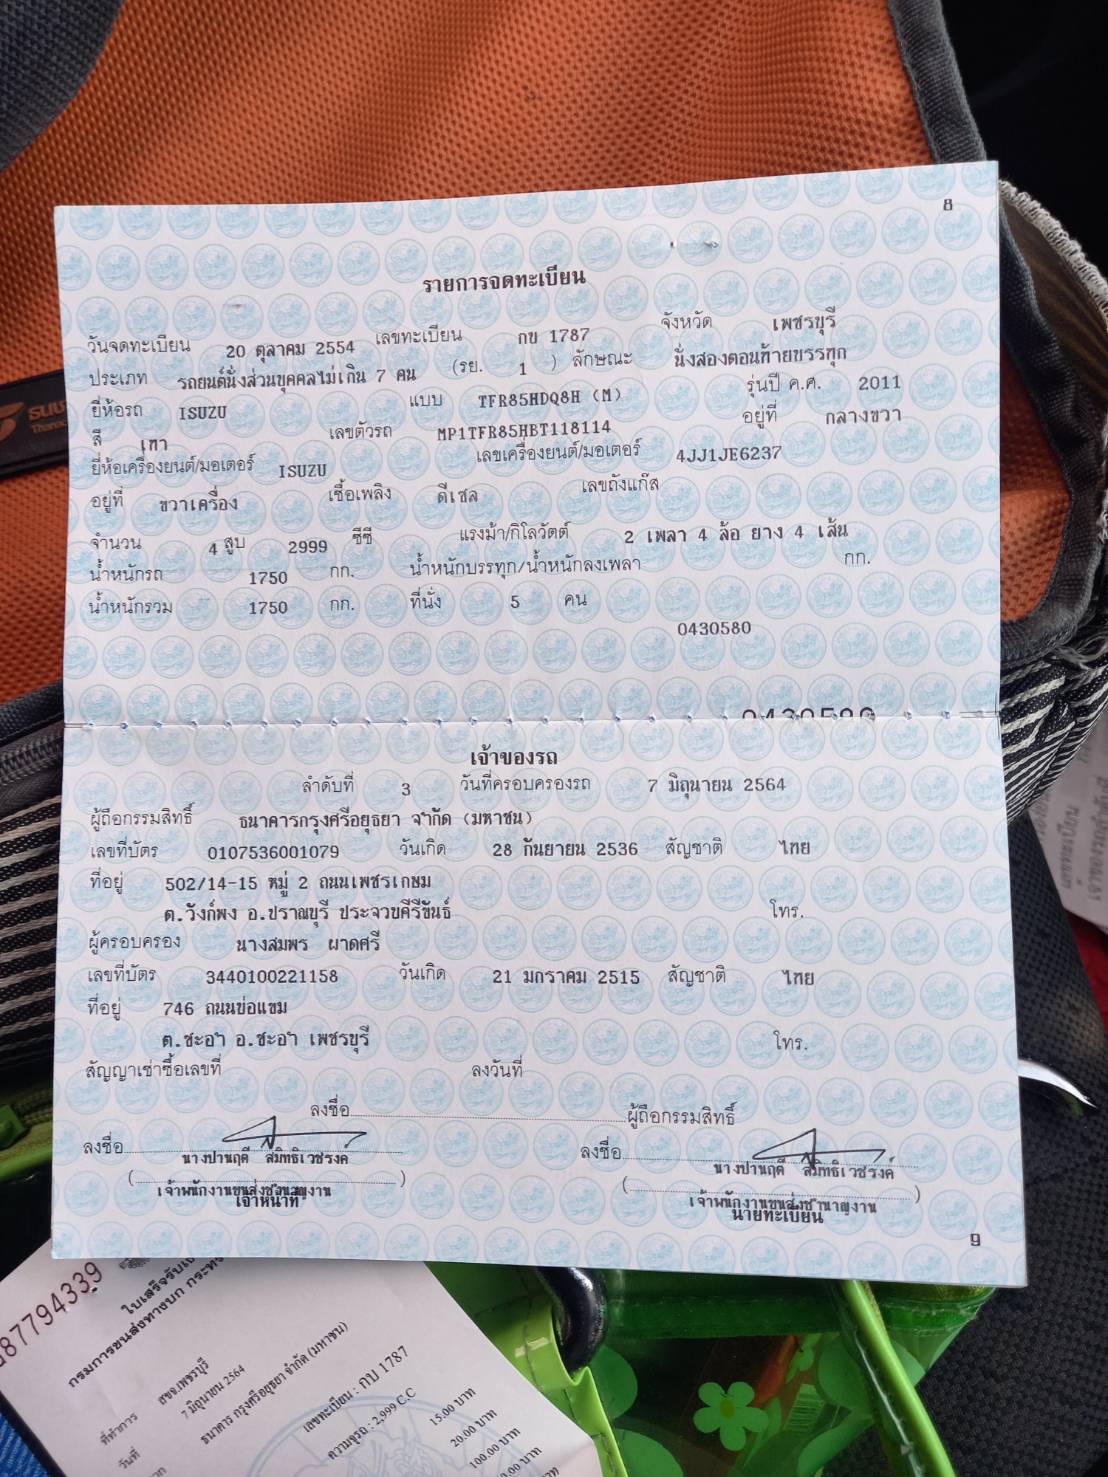 8
รายการจดทะเบียน
วันจดทะเบียน 20 ตุลาคม 2554 เลขทะเบียน กข 1787 จังหวัด เพชรบุรี
ประเภท รถยนต์นั่งส่วนบุคคลไม่เกิน 7 คน (รย. 1 ) ลักษณะ นั่งสองตอนท้ายบรรทุก
ยี่ห้อรถ ISUZU แบบ TFR85HDQ8H (M) รุ่นปี ค.ศ. 2011
สี เทา เลขตัวรถ MP1TFR85HBT118114 อยู่ที่ กลางขวา
ยี่ห้อเครื่องยนต์/มอเตอร์ ISUZU เลขเครื่องยนต์/มอเตอร์ 4JJ1JE6237
อยู่ที่ ขวาเครื่อง เชื้อเพลิง ดีเซล เลขถังแก๊ส
จำนวน 4 สูบ 2999 ซีซี แรงม้า/กิโลวัตต์ 2 เพลา 4 ล้อ ยาง 4 เส้น
น้ำหนักรถ 1750 กก. น้ำหนักบรรทุก/น้ำหนักลงเพลา กก.
น้ำหนักรวม 1750 กก. ที่นั่ง 5 คน
0430580
0430580
เจ้าของรถ
ลำดับที่ 3 วันที่ครอบครองรถ 7 มิถุนายน 2564
ผู้ถือกรรมสิทธิ์ ธนาคารกรุงศรีอยุธยา จำกัด (มหาชน)
เลขที่บัตร 0107536001079 วันเกิด 28 กันยายน 2536 สัญชาติ ไทย
ที่อยู่ 502/14-15 หมู่ 2 ถนนเพชรเกษม
ต.วังก์พง อ.ปราณบุรี ประจวบคีรีขันธ์ โทร.
ผู้ครอบครอง นางสมพร ผาดศรี
เลขที่บัตร 3440100221158 วันเกิด 21 มกราคม 2515 สัญชาติ ไทย
ที่อยู่ 746 ถนนบ่อแขม
ต.ชะอำ อ.ชะอำ เพชรบุรี โทร.
สัญญาเช่าซื้อเลขที่ ลงวันที่
ลงชื่อ ผู้ถือกรรมสิทธิ์
ลงชื่อ ลงชื่อ
นางปานฤดี สมิทธิเวชรงค์ นางปานฤดี สมิทธิเวชรงค์
เจ้าพนักงานขนส่งชำนาญงาน เจ้าพนักงานขนส่งชำนาญงาน
เจ้าหน้าที่ นายทะเบียน
9
87794339
ใบเสร็จรับเงิน
กรมการขนส่งทางบก
ที่ทำการ สขจ.เพชรบุรี
วันที่ 7 มิถุนายน 2564
ธนาคาร กรุงศรีอยุธยา จำกัด (มหาชน)
เลขทะเบียน : กบ 1787
ความจุรถ : 2,999 C.C
15.00 บาท
20.00 บาท
100.00 บาท